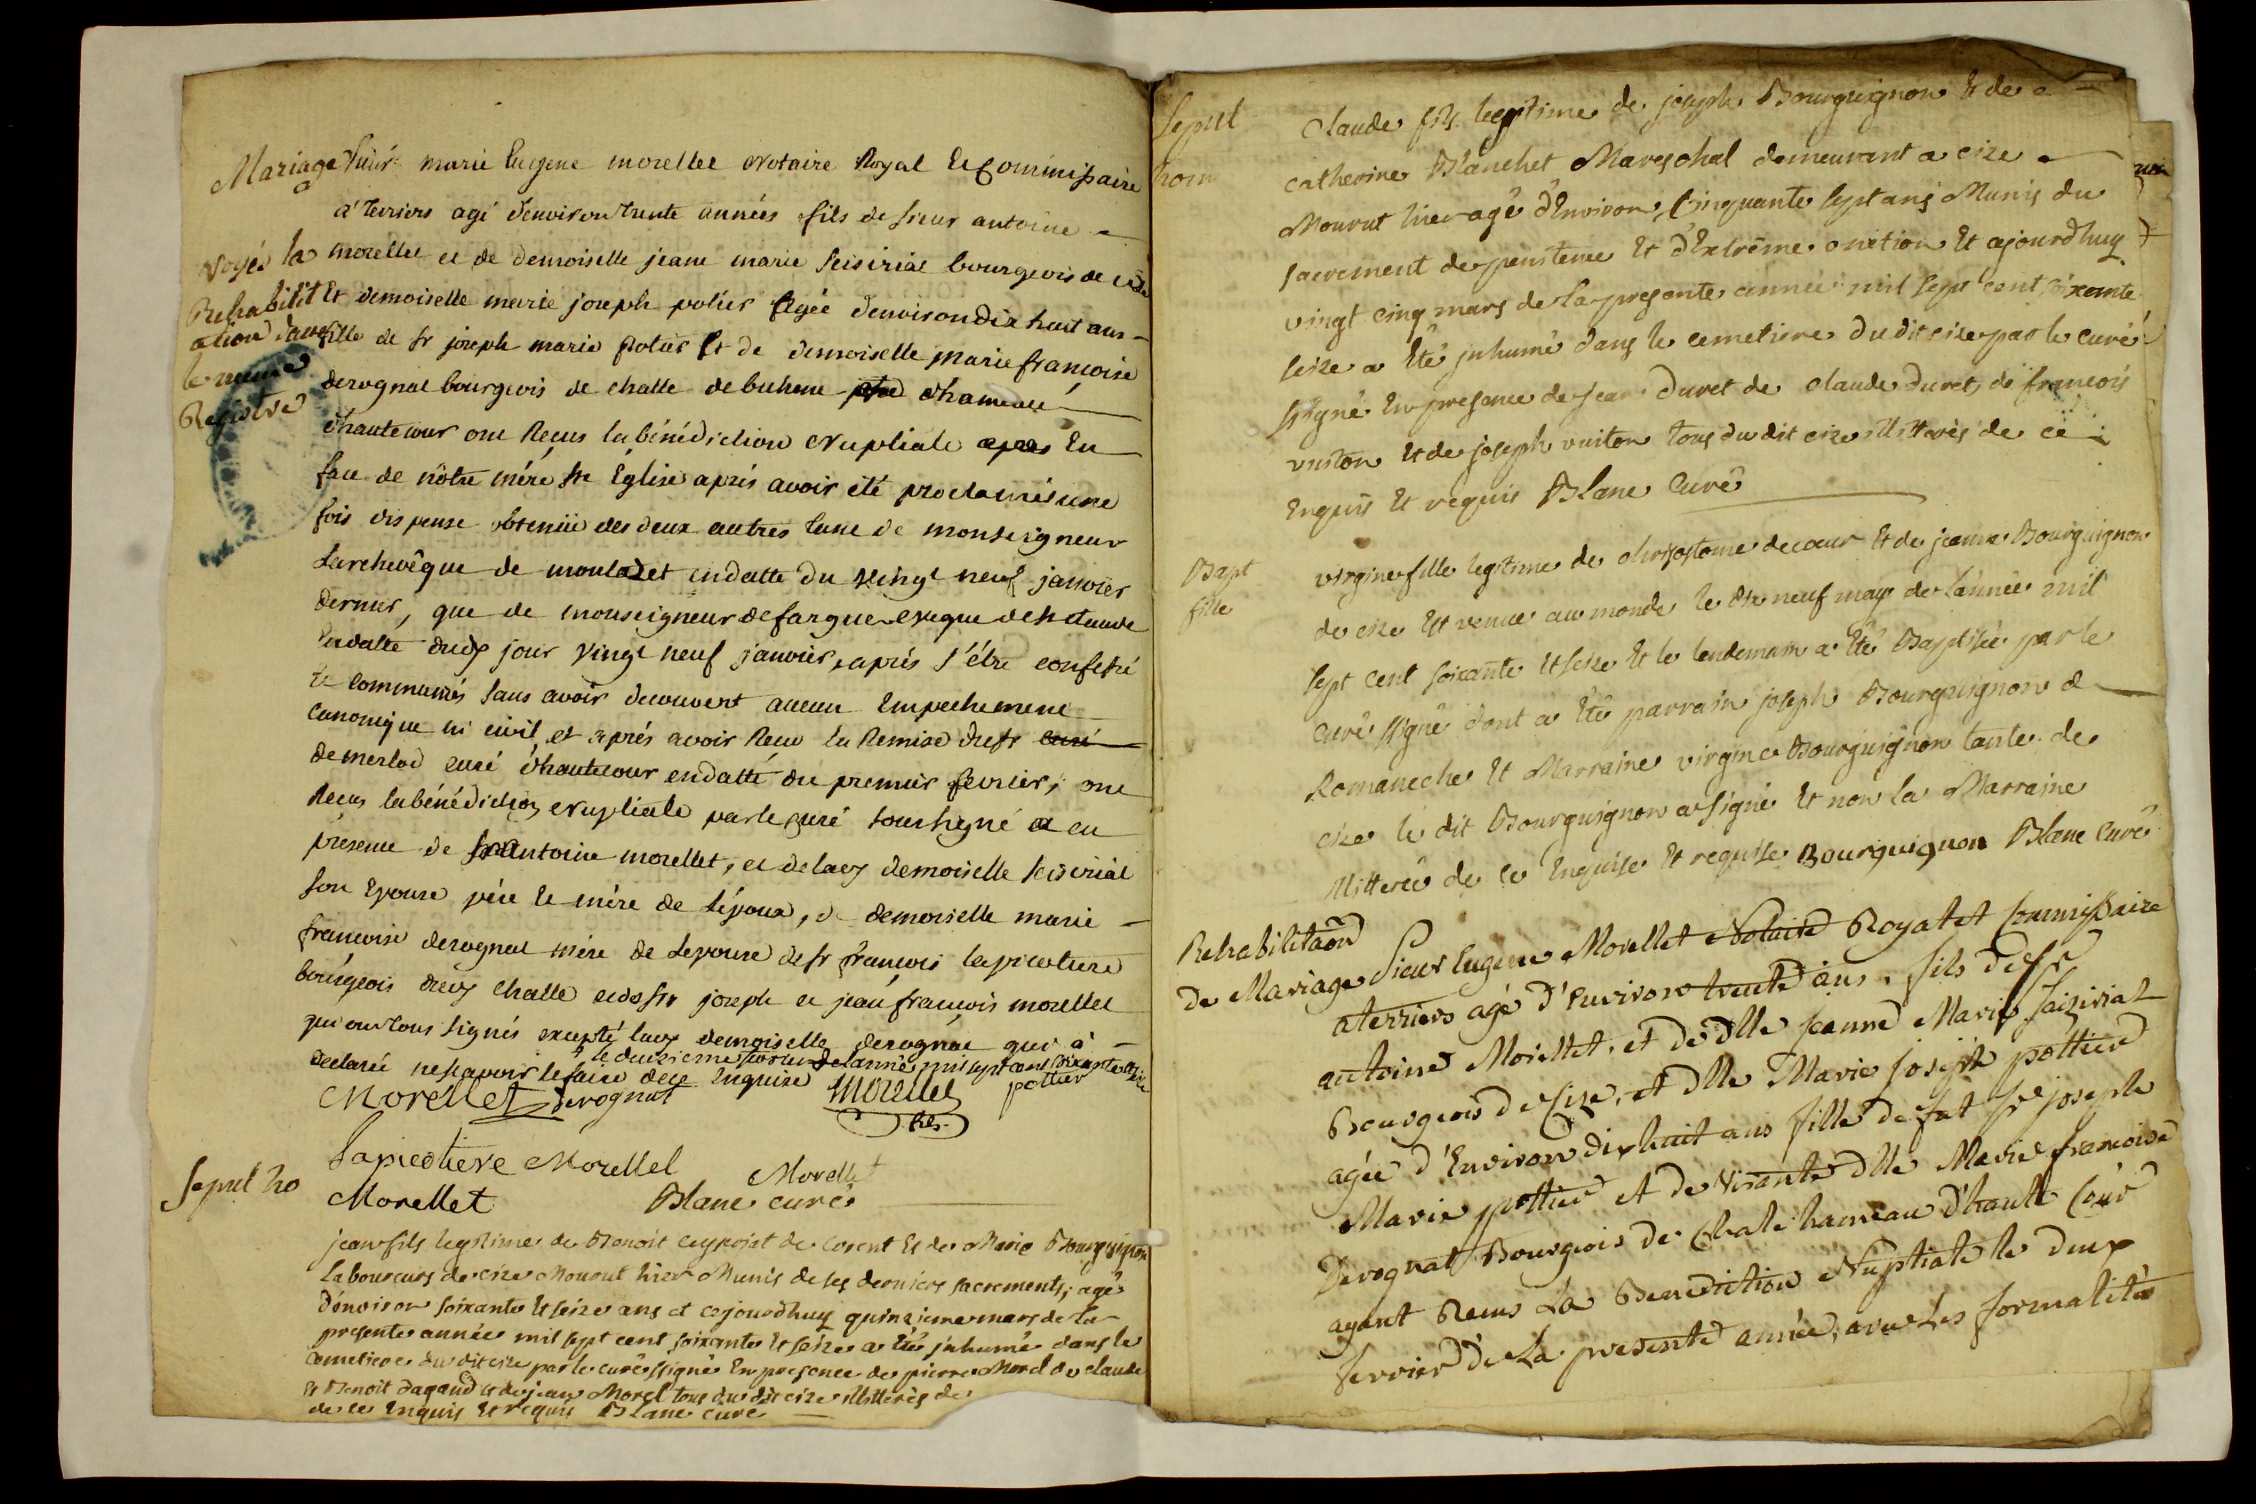 Mariage Sieur marie Eugene morellet Notaire Royal Et Commissaire
a terriers agé d'environ trente années fils de sieur antoine
voyés la morellet et de demoiselle jeane marie seisiriat bourgeois de cize
Rehabilit Et demoiselle marie joseph potier Agée d'environ dix huit ans
ation dans fille de sr joseph marie potier Et de demoiselle marie françoise
le meme derognat bourgeois de challe de buhene d'hameau
Registre d'hautecour ont Reçus la bénédiction Nuptiale apres En
face de nôtre mére ste Eglise aprés avoir été proclamés une
fois dispense obtenüe des deux autres tant de monseigneur
Larchevêque de montazet en datte du vingt neuf janvier
dernier, que de monseigneur de fargue eveque de st claude
En datte dudt jour vingt neuf janvier, aprés s'étre confessé
Et communiés sans avoir decouvert aucun Empechement
canonique ni civil, et aprés avoir Recu la Remise du sr curé
demerlod curé d'hautecour en datté du premier fevrier, ont
Recus la bénédiction Nuptiale par le curé soussigné et en
presence de sr antoine morellet, et de lad demoiselle seisiriat
son Epouse pére Et mére de L'époux, de demoiselle marie
francoise derognat mére de Lepouse de sr françois lapicotiere
bourgeois dud challe et de srs joseph et jean françois morellet
qui ont tous signés excepté lad demoiselle derognat qui à
declaré ne sçavoir le faire de ce Enquise le deuxieme fevrier de lannée mil sept cent soixante et seize
Morellet derognat Morellet fils pottier
Lapicotiere Morellet
Morellet
Sepul ho Morellet Blanc curé
jean fils legitime de Benoit cuypoist de corent Et de Marie Bourguignon
Laboureurs de cize Mourut hier Munis de ses derniers sacrements, agé
d'environ soixante Et seize ans et cejourdhuy quinzieme mars de la
presente année mil sept cent soixante Et seize a été inhumé dans le
cemetiere du dit cize par le curé ssigné En presence de pierre Morel de claude
Et Benoit dagand et de jean Morel tous du dit cize illitterés de
de ce Enquis Et requis Blanc curé
Sepult Claude fils legitime de joseph Bourguignon Et de
hom catherine Blanchet Mareschal demeurant a cize
Mourut hier agé d'Environ Cinquante sept ans Munis du
sacrement de penitence Et d'Extrême onction Et cejourdhuy
vingt cinq mars de la presente année mil sept cent soixante
seize a Eté inhumé dans le cemetiere du dit cize par le curé
ssigné En presence de jean duret de claude duret de francois
vuiton Et de joseph vuiton tous du dit cize illitterés de ce
Enquis Et requis Blanc Curé
Bapt virgine fille legitime de chrisostome decoeur Et de jeanne Bourguignon
fille de cize Est venue au monde le dix neuf may de l'année mil
sept cent soixante Et seize Et le lendemain a Eté Baptisée par le
curé ssigné dont a Eté parrain joseph Bourguignon de
Romaneche Et Marraine virgine Bourguignon tante de
cize le dit Bourguignon a signé Et non la Marraine
illitterée de ce Enquise Et requise Bourguignon Blanc Curé
Rehabilitaôn
de Mariage Sieur Eugene Morellet Notaire Royal et Commissaire
a terriers agé d'Environ trente ans, fils de sr
antoine Morellet, et de dlle Jeanne Marie saisiriat
Bourgeois de Cize, et dlle Marie joseph pottier
agée d'Environ dixhuit ans fille de fat sr joseph
Marie pottier et de vivante dlle Marie francoise
Derognat Bourgeois de Chale hameau d'haute Cour
ayant Recus La Benediction Nuptiale le deux
fevrier de La presente année, avec Les formalités